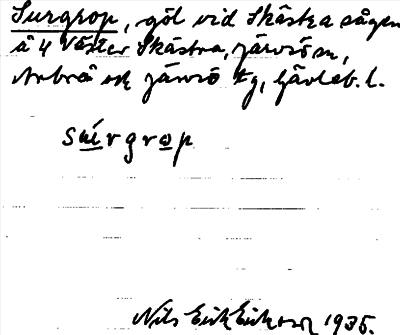 Surgrop, göl vid Skästra sågen
å 4 Väster Skästra, Järvsö sn,
Arbrå och Järvsö tg, Gävleb. l.
súrgrop
Nils Erik Eriksson 1935.